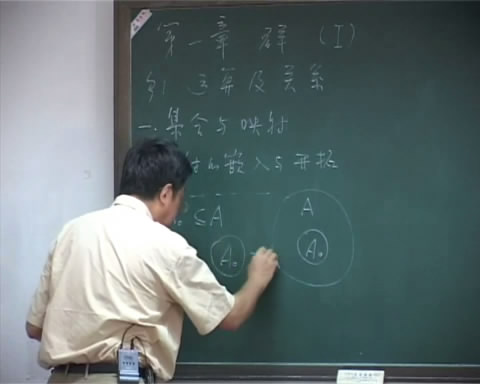 第一章 群 (I)
§1 运算及关系
一.集合与映射
的嵌入与开拓
A₀ ⊆ A
A
A₀
A₀